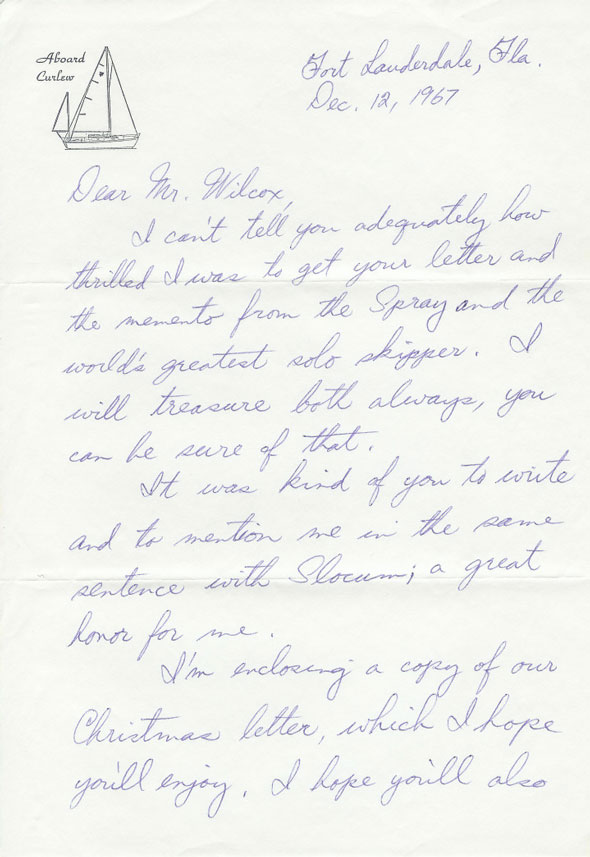 Aboard
Curlew
Fort Lauderdale, Fla.
Dec. 12, 1967
Dear Mr. Wilcox,
I can't tell you adequately how
thrilled I was to get your letter and
the memento from the Spray and the
world's greatest solo skipper. I
will treasure both always, you
can be sure of that.
It was kind of you to write
and to mention me in the same
sentence with Slocum; a great
honor for me.
I'm enclosing a copy of our
Christmas letter, which I hope
you'll enjoy. I hope you'll also